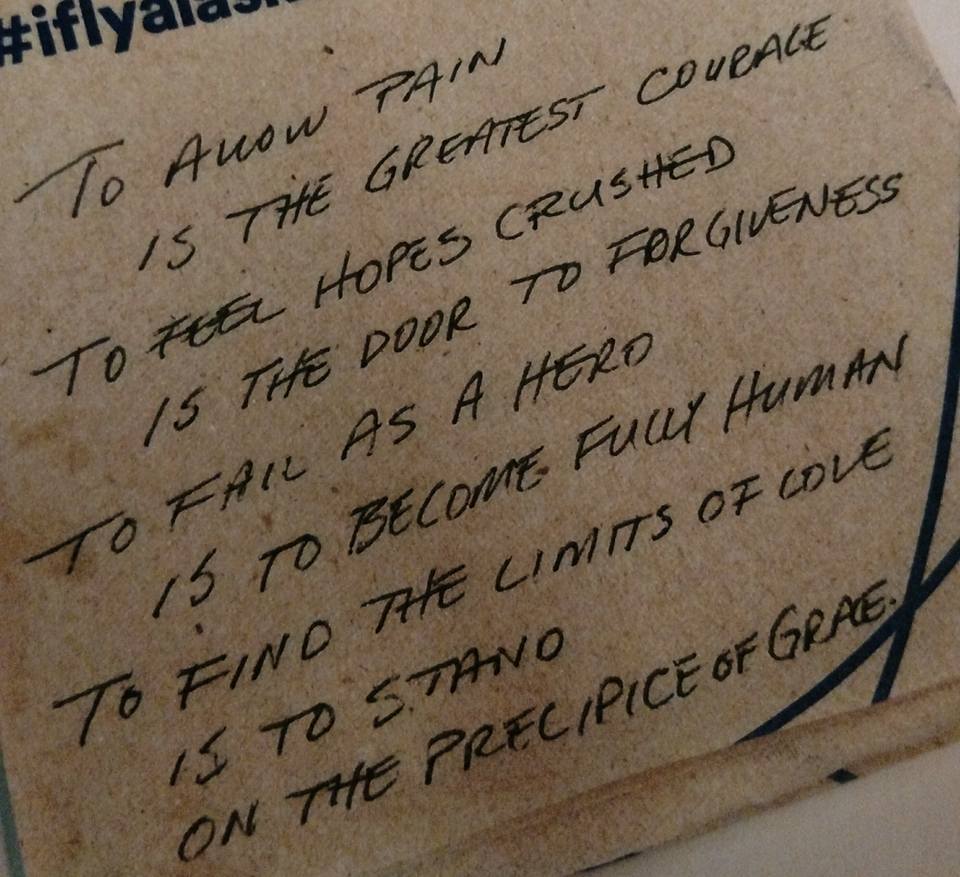 #iflyalas
TO ALLOW PAIN
IS THE GREATEST COURAGE
TO FEEL HOPES CRUSHED
IS THE DOOR TO FORGIVENESS
TO FAIL AS A HERO
IS TO BECOME FULLY HUMAN
TO FIND THE LIMITS OF LOVE
IS TO STAND
ON THE PRECIPICE OF GRACE.